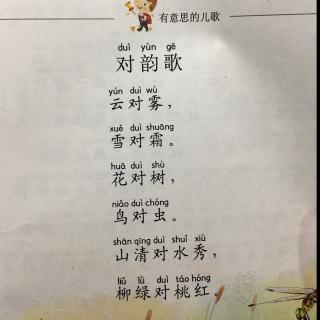 有意思的儿歌
duì yùn gē
对韵歌
yún duì wù
云对雾，
xuě duì shuāng
雪对霜。
huā duì shù
花对树，
niǎo duì chóng
鸟对虫。
shān qīng duì shuǐ xiù
山清对水秀，
liǔ lǜ duì táo hóng
柳绿对桃红。